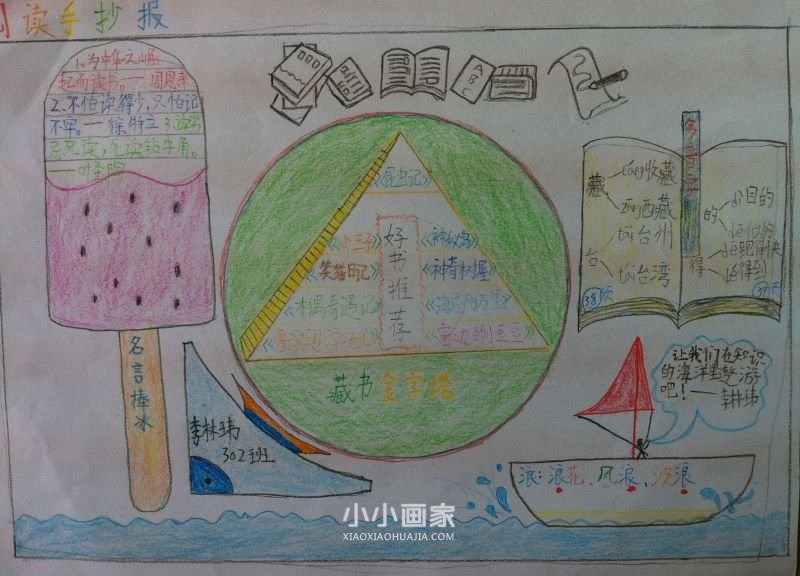 读手抄报
1.为中华之崛
起而读书。——周恩来
2.不怕读得少，只怕记
不牢。——徐特立 3.读书
忌死读，死读钻牛角。
名言棒冰
李林玮
302班
《昆虫记》
《小王子》
《笑猫日记》
《木偶奇遇记》
好书推荐
《神秘岛》
《神奇树屋》
《海底两万里》
《窗边的小豆豆》
藏书金字塔
A
B
C
多音字
藏
cáng 收藏
zàng 西藏
台
tāi 台州
tái 台湾
38页
的
dì 目的
de 似的
得
de 跑得快
dé 得到
39页
让我们在知识
的海洋里遨游
吧！——李林玮
浪:浪花、风浪、波浪
小小画家
XIAOXIAOHUAJIA.COM